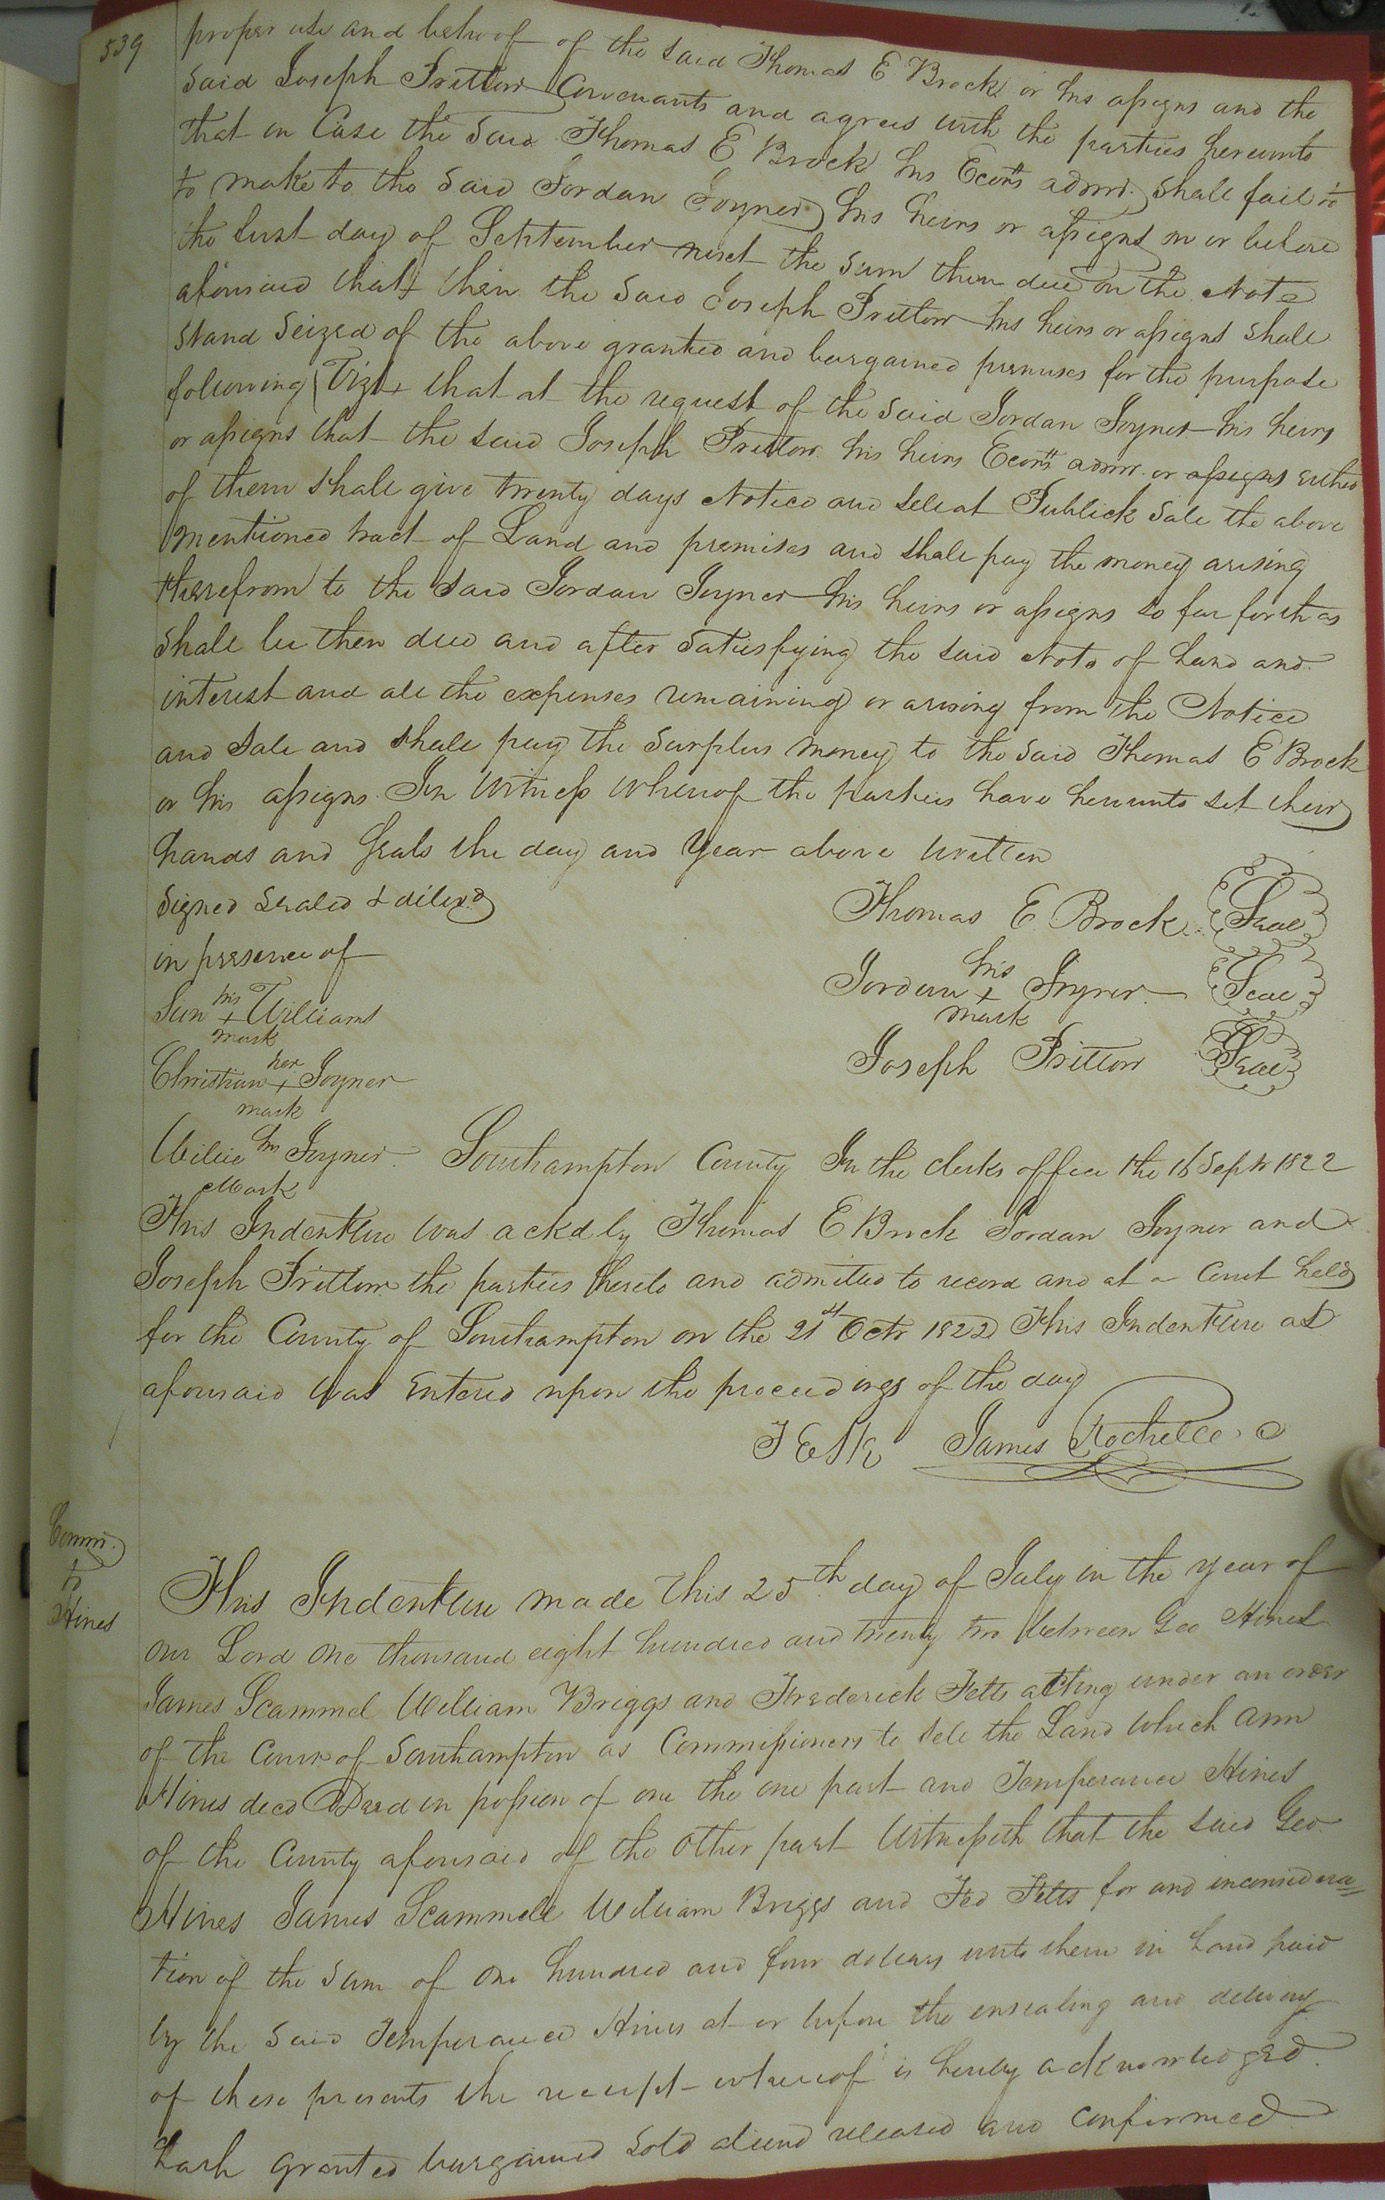 539
proper use and behoof of the said Thomas E Brock or his assigns and the
said Joseph Prittow Covenants and agrees with the parties hereunto
that in Case the said Thomas E Brock his Ecors admr. shall fail to
to make to the said Jordan Joyner his heirs or assigns on or before
the last day of September next the sum then due on the Note
aforesaid that then the said Joseph Prittow his heirs or assigns shall
stand seized of the above granted and bargained premises for the purpose
following Vizt that at the request of the said Jordan Joyner his heirs
or assigns that the said Joseph Prittow his heirs Ecors admr. or assigns either
of them shall give twenty days Notice and sell at Publick Sale the above
mentioned tract of Land and premises and shall pay the money arising
therefrom to the said Jordan Joyner his heirs or assigns so far forth as
shall be then due and after satisfying the said Note of hand and
interest and all the expenses remaining or arising from the Notice
and Sale and shall pay the surplus money to the said Thomas E Brock
or his assigns In Witness whereof the parties have hereunto set their
hands and Seals the day and Year above written
Signed Sealed & delivd
in presence of
Thomas E Brock Seal
Jordan his + mark Joyner Seal
Joseph Prittow Seal
his + mark Williams
Christian her + mark Joyner
Willie his Mark Joyner
Southampton County In the clerks office the 16 Septr 1822
This Indenture was ackd by Thomas E Brock Jordan Joyner and
Joseph Prittow the parties hereto and admitted to record and at a Court held
for the County of Southampton on the 21st Octr 1822 This Indenture as
aforesaid was Entered upon the proceedings of the day
Teste James Rochelle C
Commr.
to
Hines
This Indenture made this 25th day of July in the year of
our Lord One thousand eight hundred and twenty two between Geo Hines
James Scammel William Briggs and Frederick Felts acting under an order
of the Court of Southampton as Commissioners to sell the Land which Ann
Hines decd Died in possion of one the one part and Temperance Hines
of the County aforesaid of the Other part Witnesseth that the said Geo
Hines James Scammell William Briggs and Fed Felts for and inconsidera=
tion of the sum of one hundred and four dollars unto them in hand paid
by the said Temperance Hines at or before the ensealing and delivery
of these presents the receipt whereof is hereby acknowledged
hath granted bargained sold aliend released and confirmed